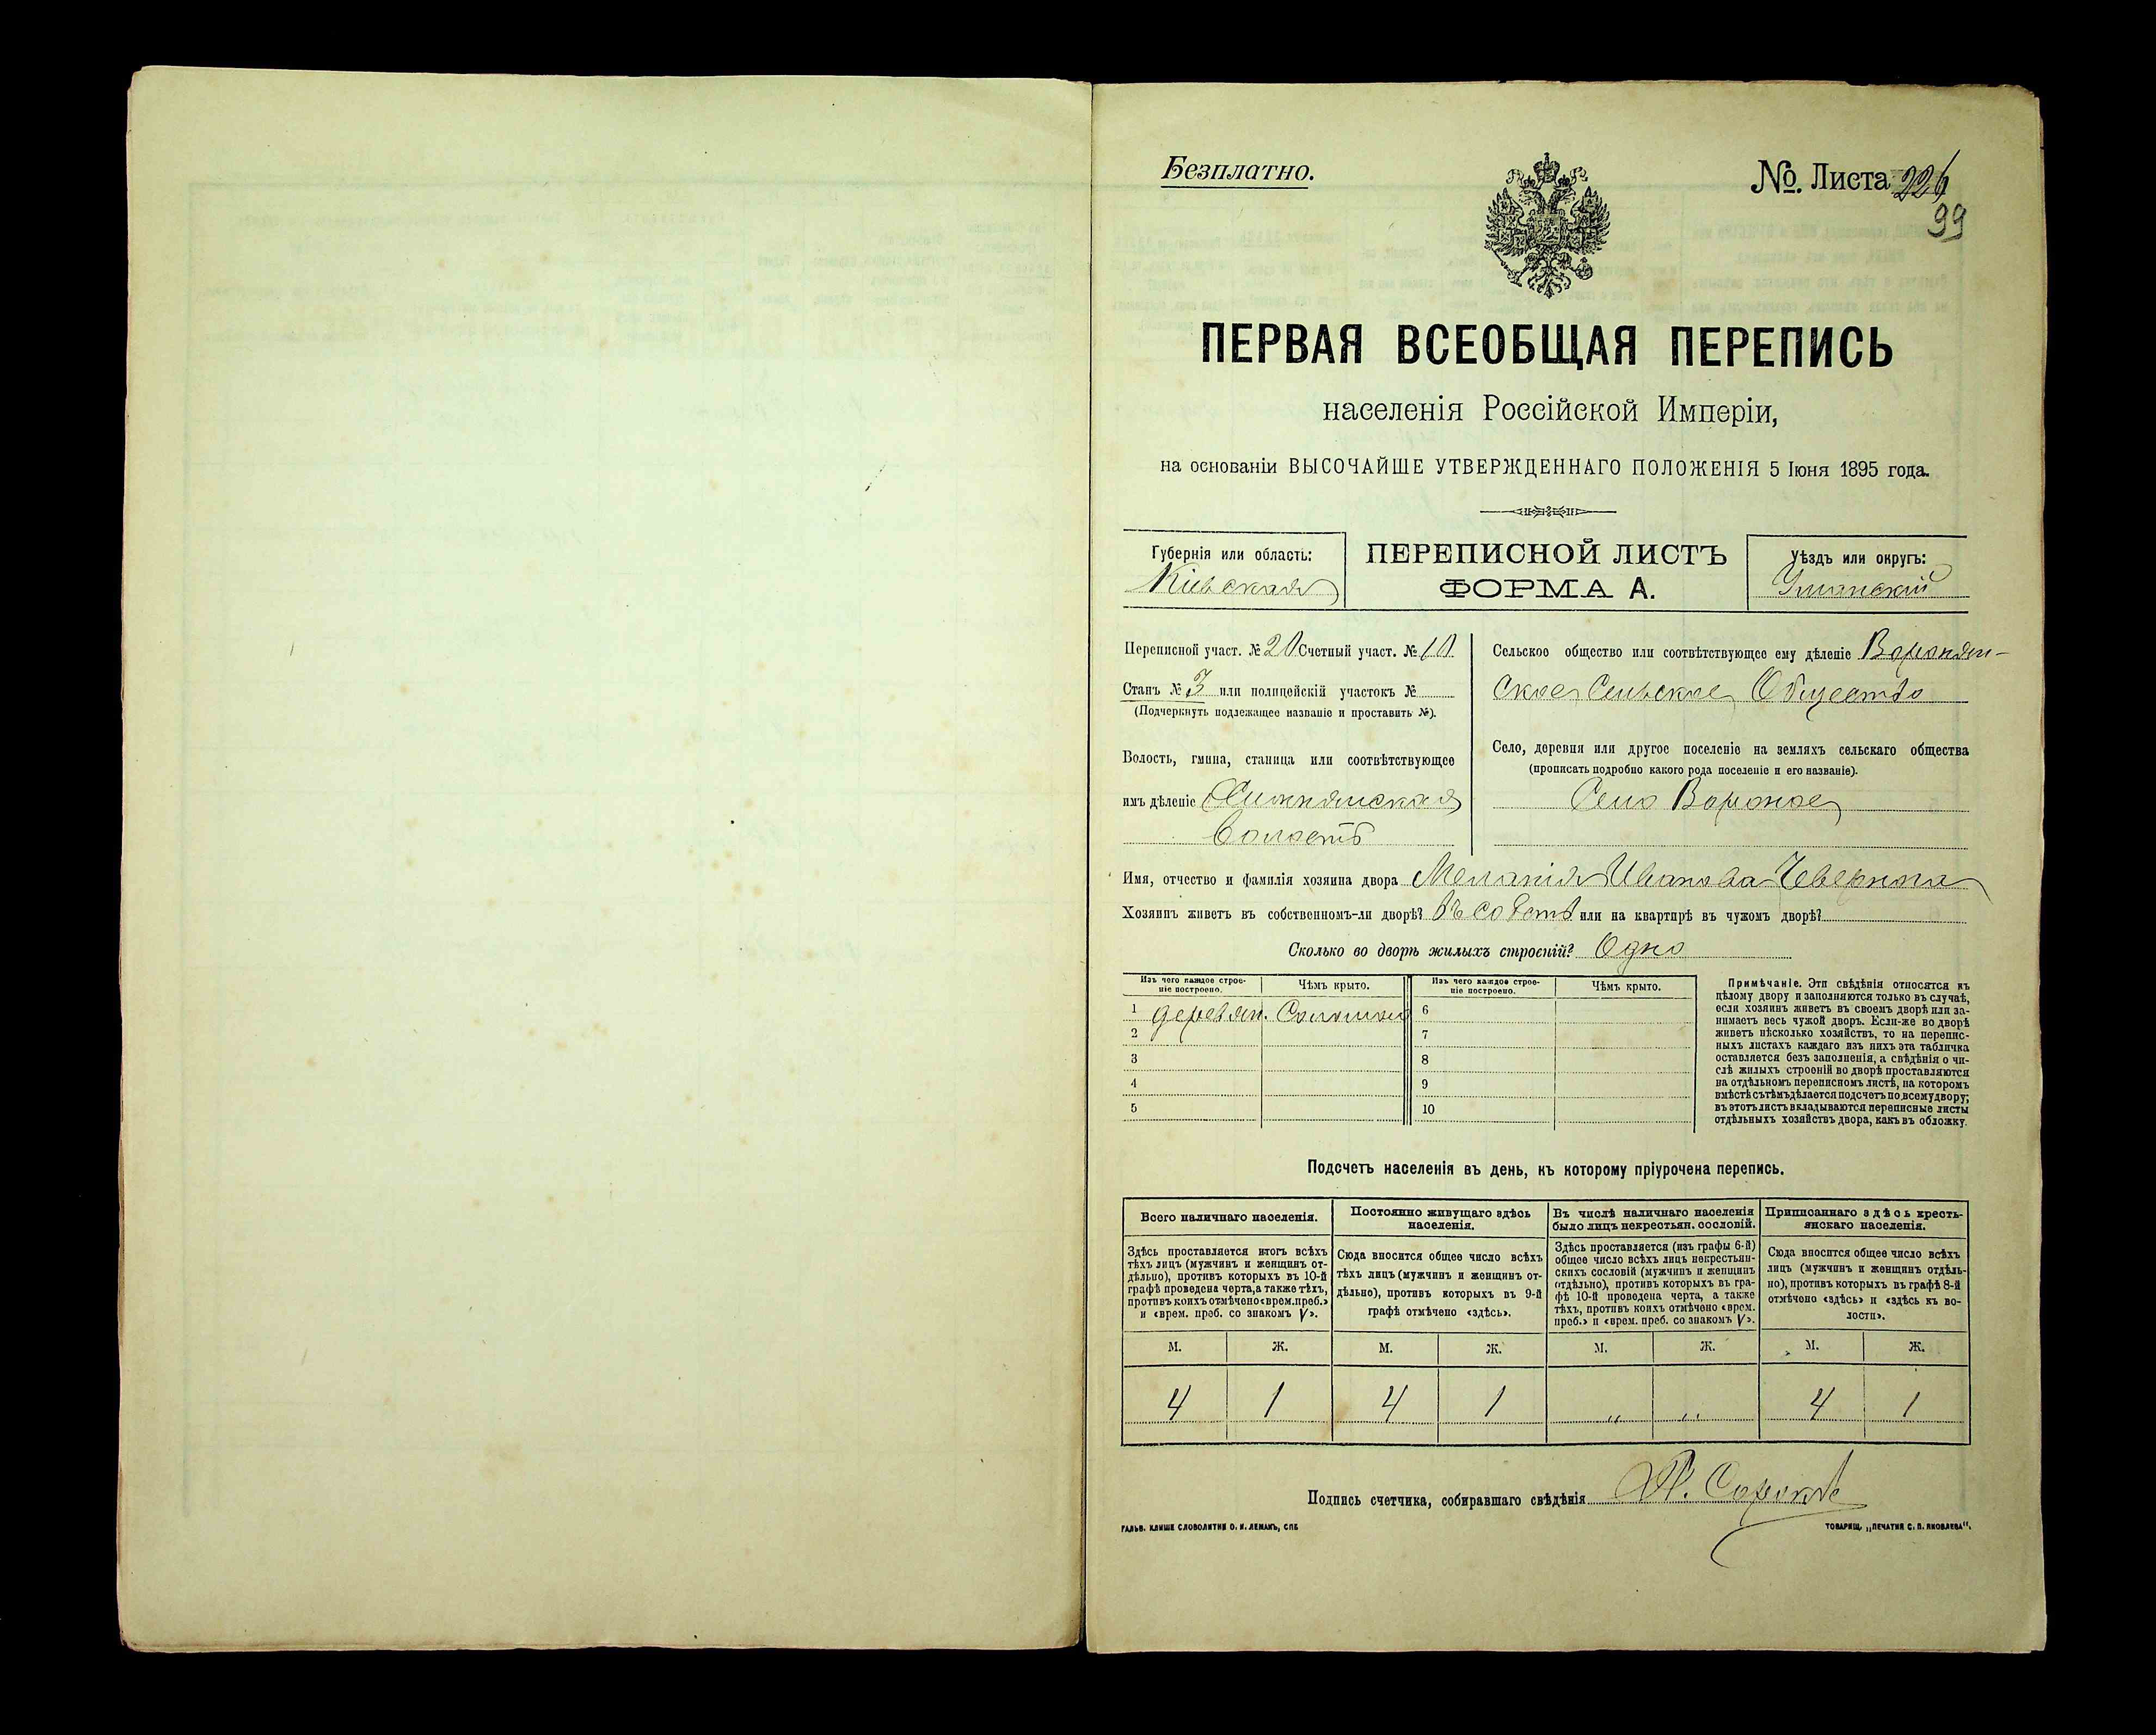 Безплатно.
№ Листа 226
99
ПЕРВАЯ ВСЕОБЩАЯ ПЕРЕПИСЬ
населенія Россійской Имперіи,
на основаніи ВЫСОЧАЙШЕ УТВЕРЖДЕННАГО ПОЛОЖЕНІЯ 5 Іюня 1895 года.
Губернія или область:
Кіевская
ПЕРЕПИСНОЙ ЛИСТЪ
ФОРМА А.
Уѣздъ или округъ:
Уманскій
Переписной участ. № 20 Счетный участ. № 10
Станъ № 3 или полицейскій участокъ №
(Подчеркнуть подлежащее названіе и проставить №).
Волость, гмина, станица или соотвѣтствующее
имъ дѣленіе
Волость
Сельское общество или соотвѣтствующее ему дѣленіе Воронян-
ское Сельское Общество
Село, деревня или другое поселеніе на земляхъ сельскаго общества
(прописать подробно какого рода поселеніе и его названіе).
Село Вороное
Имя, отчество и фамилія хозяина двора Меланія Иванова
Хозяинъ живетъ въ собственномъ-ли дворѣ? Въ собств или на квартирѣ въ чужомъ дворѣ?
Сколько во дворѣ жилыхъ строеній? Одно
Изъ чего каждое строе-
ніе построено.
Чѣмъ крыто.
Изъ чего каждое строе-
ніе построено.
Чѣмъ крыто.
1 деревян. Соломой 6
2 7
3 8
4 9
5 10
Примѣчаніе. Эти свѣдѣнія относятся къ
цѣлому двору и заполняются только въ случаѣ,
если хозяинъ живетъ въ своемъ дворѣ или за-
нимаетъ весь чужой дворъ. Если-же во дворѣ
живетъ нѣсколько хозяйствъ, то на перепис-
ныхъ листахъ каждаго изъ нихъ эта табличка
оставляется безъ заполненія, а свѣдѣнія о чи-
слѣ жилыхъ строеній во дворѣ проставляются
на отдѣльномъ переписномъ листѣ, на которомъ
вмѣстѣ съ тѣмъ дѣлается подсчетъ по всему двору;
въ этотъ листъ вкладываются переписные листы
отдѣльныхъ хозяйствъ двора, какъ въ обложку.
Подсчетъ населенія въ день, къ которому пріурочена перепись.
Всего наличнаго населенія.
Здѣсь проставляется итогъ всѣхъ
тѣхъ лицъ (мужчинъ и женщинъ от-
дѣльно), противъ которыхъ въ 10-й
графѣ проведена черта, а также тѣхъ,
противъ коихъ отмѣчено «врем. преб.»
и «врем. преб. со знакомъ V».
Постоянно живущаго здѣсь
населенія.
Сюда вносится общее число всѣхъ
тѣхъ лицъ (мужчинъ и женщинъ от-
дѣльно), противъ которыхъ въ 9-й
графѣ отмѣчено «здѣсь».
Въ числѣ наличнаго населенія
было лицъ некрестьян. сословій.
Здѣсь проставляется (изъ графы 6-й)
общее число всѣхъ лицъ некрестьян-
скихъ сословій (мужчинъ и женщинъ
отдѣльно), противъ которыхъ въ гра-
фѣ 10-й проведена черта, а также
тѣхъ, противъ коихъ отмѣчено «врем.
преб.» и «врем. преб. со знакомъ V».
Приписаннаго здѣсь кресть-
янскаго населенія.
Сюда вносится общее число всѣхъ
лицъ (мужчинъ и женщинъ отдѣль-
но), противъ которыхъ въ графѣ 8-й
отмѣчено «здѣсь» и «здѣсь къ во-
лости».
М. Ж. М. Ж. М. Ж. М. Ж.
4 1 4 1 " " 4 1
Подпись счетчика, собиравшаго свѣдѣнія
ГАЛЬВ. КЛИШЕ СЛОВОЛИТНИ О. И. ЛЕМАНЪ, СПБ
ТОВАРИЩ. „ПЕЧАТНЯ С. П. ЯКОВЛЕВА".